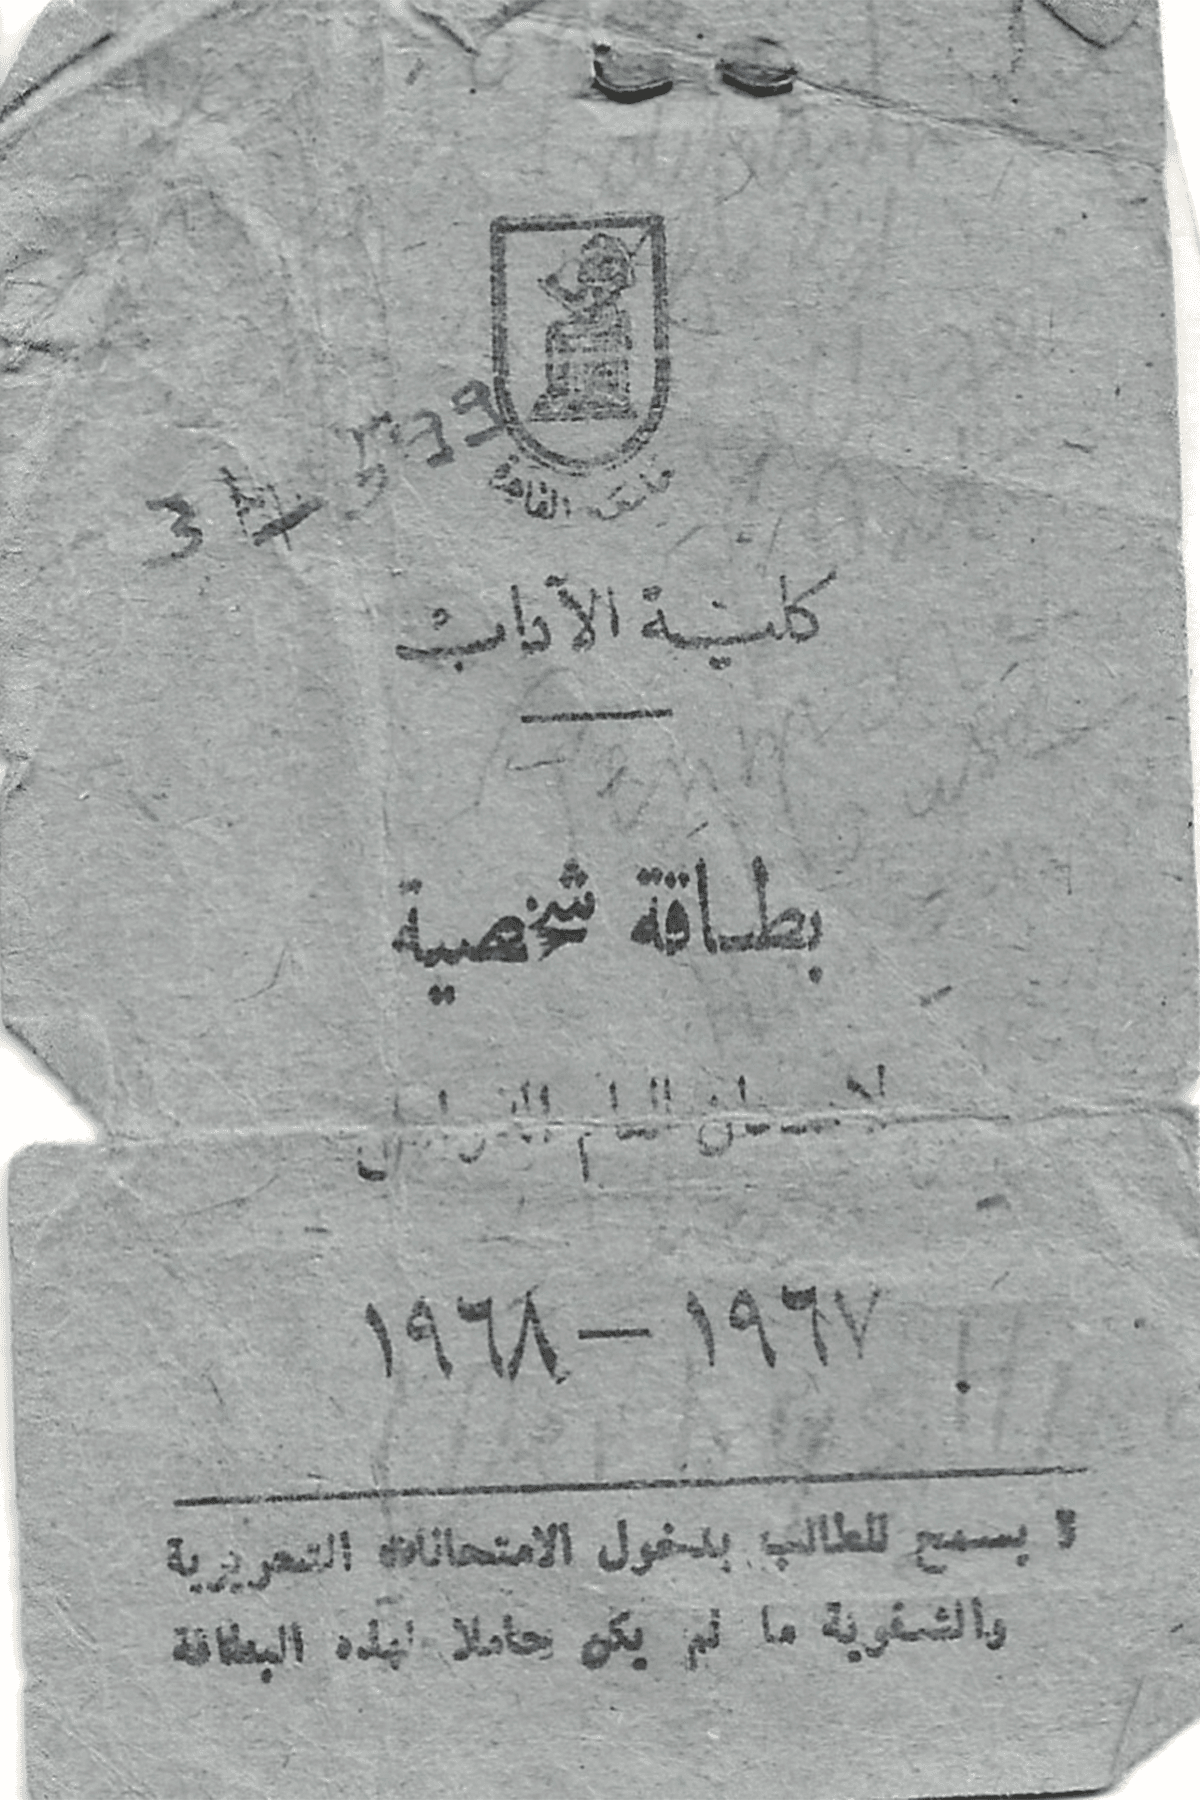 جامعة القاهرة
كلية الآداب
بطاقة شخصية
لامتحان العام
١٩٦٧ — ١٩٦٨
لا يسمح للطالب بدخول الامتحانات التحريرية
والشفوية ما لم يكن حاملا لهذه البطاقة